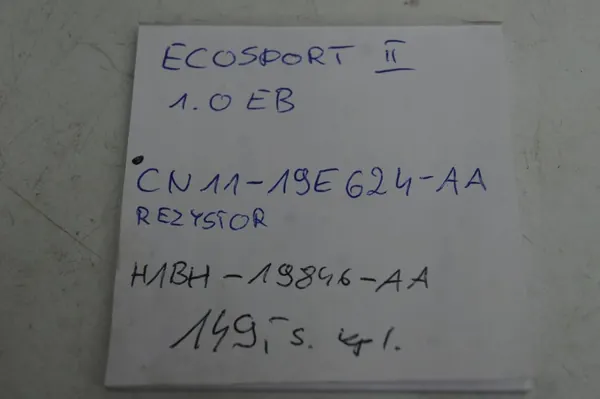 ECOSPORT II
1.0 EB
CN11-19E624-AA
REZYSTOR
H1BH-19846-AA
149,- s. kpl.